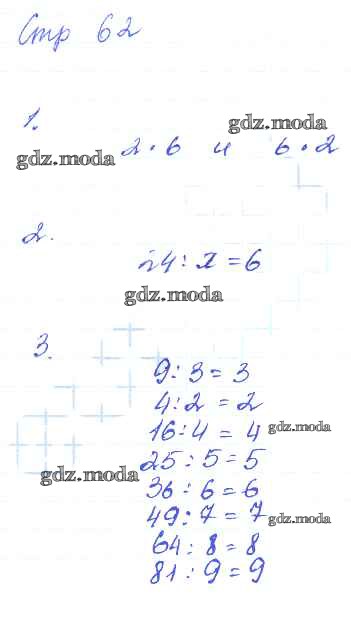 Стр 62
1.
gdz.moda
gdz.moda
2 · 6 и 6 · 2
2.
24 : x = 6
gdz.moda
3.
9 : 3 = 3
4 : 2 = 2
16 : 4 = 4
gdz.moda
25 : 5 = 5
gdz.moda
36 : 6 = 6
49 : 7 = 7
gdz.moda
64 : 8 = 8
81 : 9 = 9